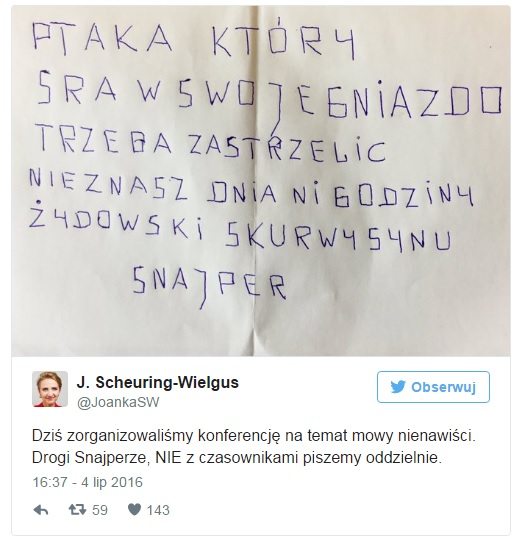 PTAKA KTÓRY
SRA W SWOJE GNIAZDO
TRZEBA ZASTRZELIC
NIEZNASZ DNIA NI GODZINY
ŻYDOWSKI SKURWYSYNU
SNAJPER
J. Scheuring-Wielgus
@JoankaSW
Obserwuj
Dziś zorganizowaliśmy konferencję na temat mowy nienawiści.
Drogi Snajperze, NIE z czasownikami piszemy oddzielnie.
16:37 - 4 lip 2016
59 143